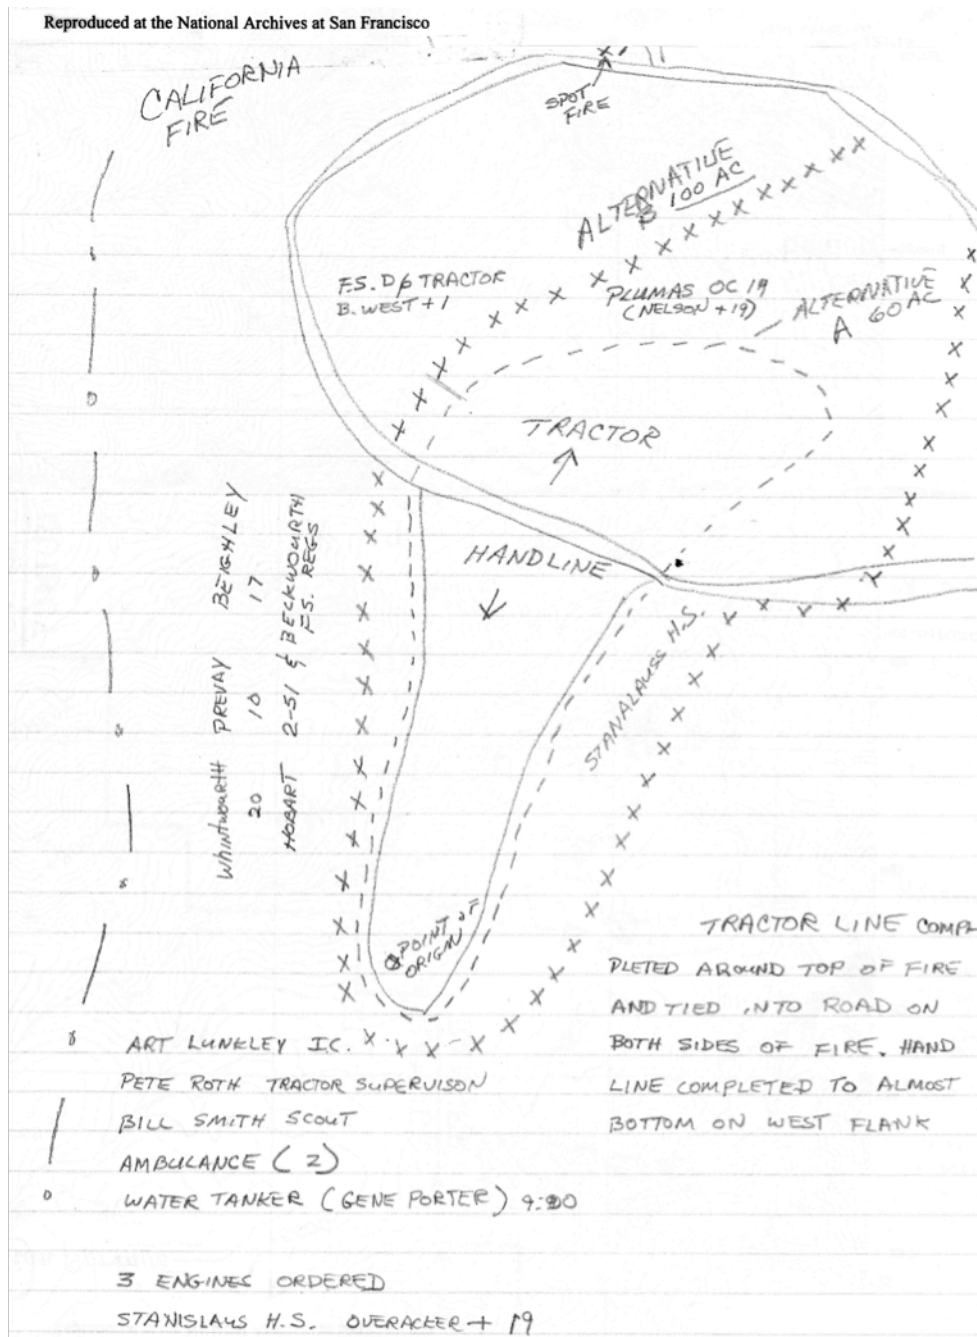 Reproduced at the National Archives at San Francisco
CALIFORNIA
FIRE
SPOT
FIRE
ALTERNATIVE
B 100 AC
F.S. D6 TRACTOR
B. WEST + 1
PLUMAS OC 19
(NELSON + 19)
ALTERNATIVE
A 60 AC
TRACTOR
HANDLINE
WHINTWOURTH PREVAY BEIGHLEY
20 10 17
HOBART 2-51 & BECKWOURTH
F.S. REGS
STANALAUSS H.S.
POINT OF
ORIGIN
TRACTOR LINE COMPL
PLETED AROUND TOP OF FIRE
AND TIED INTO ROAD ON
BOTH SIDES OF FIRE. HAND
LINE COMPLETED TO ALMOST
BOTTOM ON WEST FLANK
ART LUNKLEY I.C.
PETE ROTH TRACTOR SUPERVISON
BILL SMITH SCOUT
AMBULANCE (2)
WATER TANKER (GENE PORTER) 9:00
3 ENGINES ORDERED
STANISLAUS H.S. OVERACKER + 19